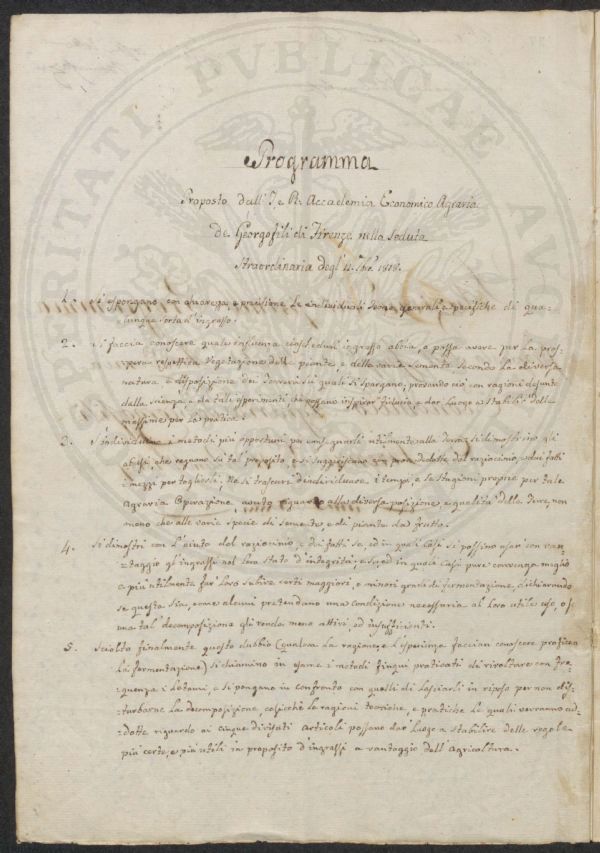 PROSPERITATI PVBLICAE AVG
Programma
Proposto dall' I. e R. Accademia Economico Agraria
de Georgofili di Firenze nella Seduta
Straordinaria degl' 11. 1818.
1. Si espongano con chiarezza, e precisione le individuali Teorie generali, e specifiche di qua-
lunque sorta d' ingrasso.
2. Si faccia conoscere quale influenza ciascheduno ingrasso abbia, o possa avere per la pros-
pera respettiva Vegetazione delle piante, e delle varie Sementa Secondo la diversa
natura e disposizione dei Terreni su quali si spargano, provando ciò con ragioni desunte
dalla Scienza, e da tali esperimenti che possano inspirar fiducia, e dar luogo a Stabilir delle
massime per la pratica.
3. S' individuino i metodi più opportuni per consegnarli utilmente alla Terra; si dimostrino gli
abusi che regnano su tal proposito, e si suggeriscano con prove dedotte dal raziocinio, e dai fatti
i mezzi per toglierli. Nè si trascuri d' individuare i tempi, e le Stagioni proprie per tale
Agraria Operazione, avuto riguardo alla diversa posizione, e qualità delle Terre, non
meno che alle varie specie di Sementa, e di piante da frutto.
4. Si dimostri con l' aiuto del raziocinio, e dei fatti se, ed in quali Casi si possino usar con van-
taggio gl' ingrassi nel loro Stato d' integrità, e se, ed in quale Casi pure convenga meglio
e più utilmente far loro subire certi maggiori, e minori gradi di fermentazione, dichiarando
se questa sia, come alcuni pretendano una condizione necessaria al loro utile uso, o s'
una tal decomposizione gli renda meno attivi, ed insufficienti.
5. Sciolto finalmente questo dubbio (qualora la ragione, e l' esperienza faccian conoscere proficua
la fermentazione) si chiamino in esame i metodi finqui praticati di rivoltare con fre-
quenza i Letami, e si pongano in confronto con quelli di lasciarli in riposo per non dis-
turbarne la decomposizione, cosicchè le ragioni teoriche, e pratiche le quali verranno ad-
dotte riguardo ai cinque divisati articoli possano dar luogo a stabilire delle regole
più certe, e più utili in proposito d' ingrassi a vantaggio dell' Agricoltura.